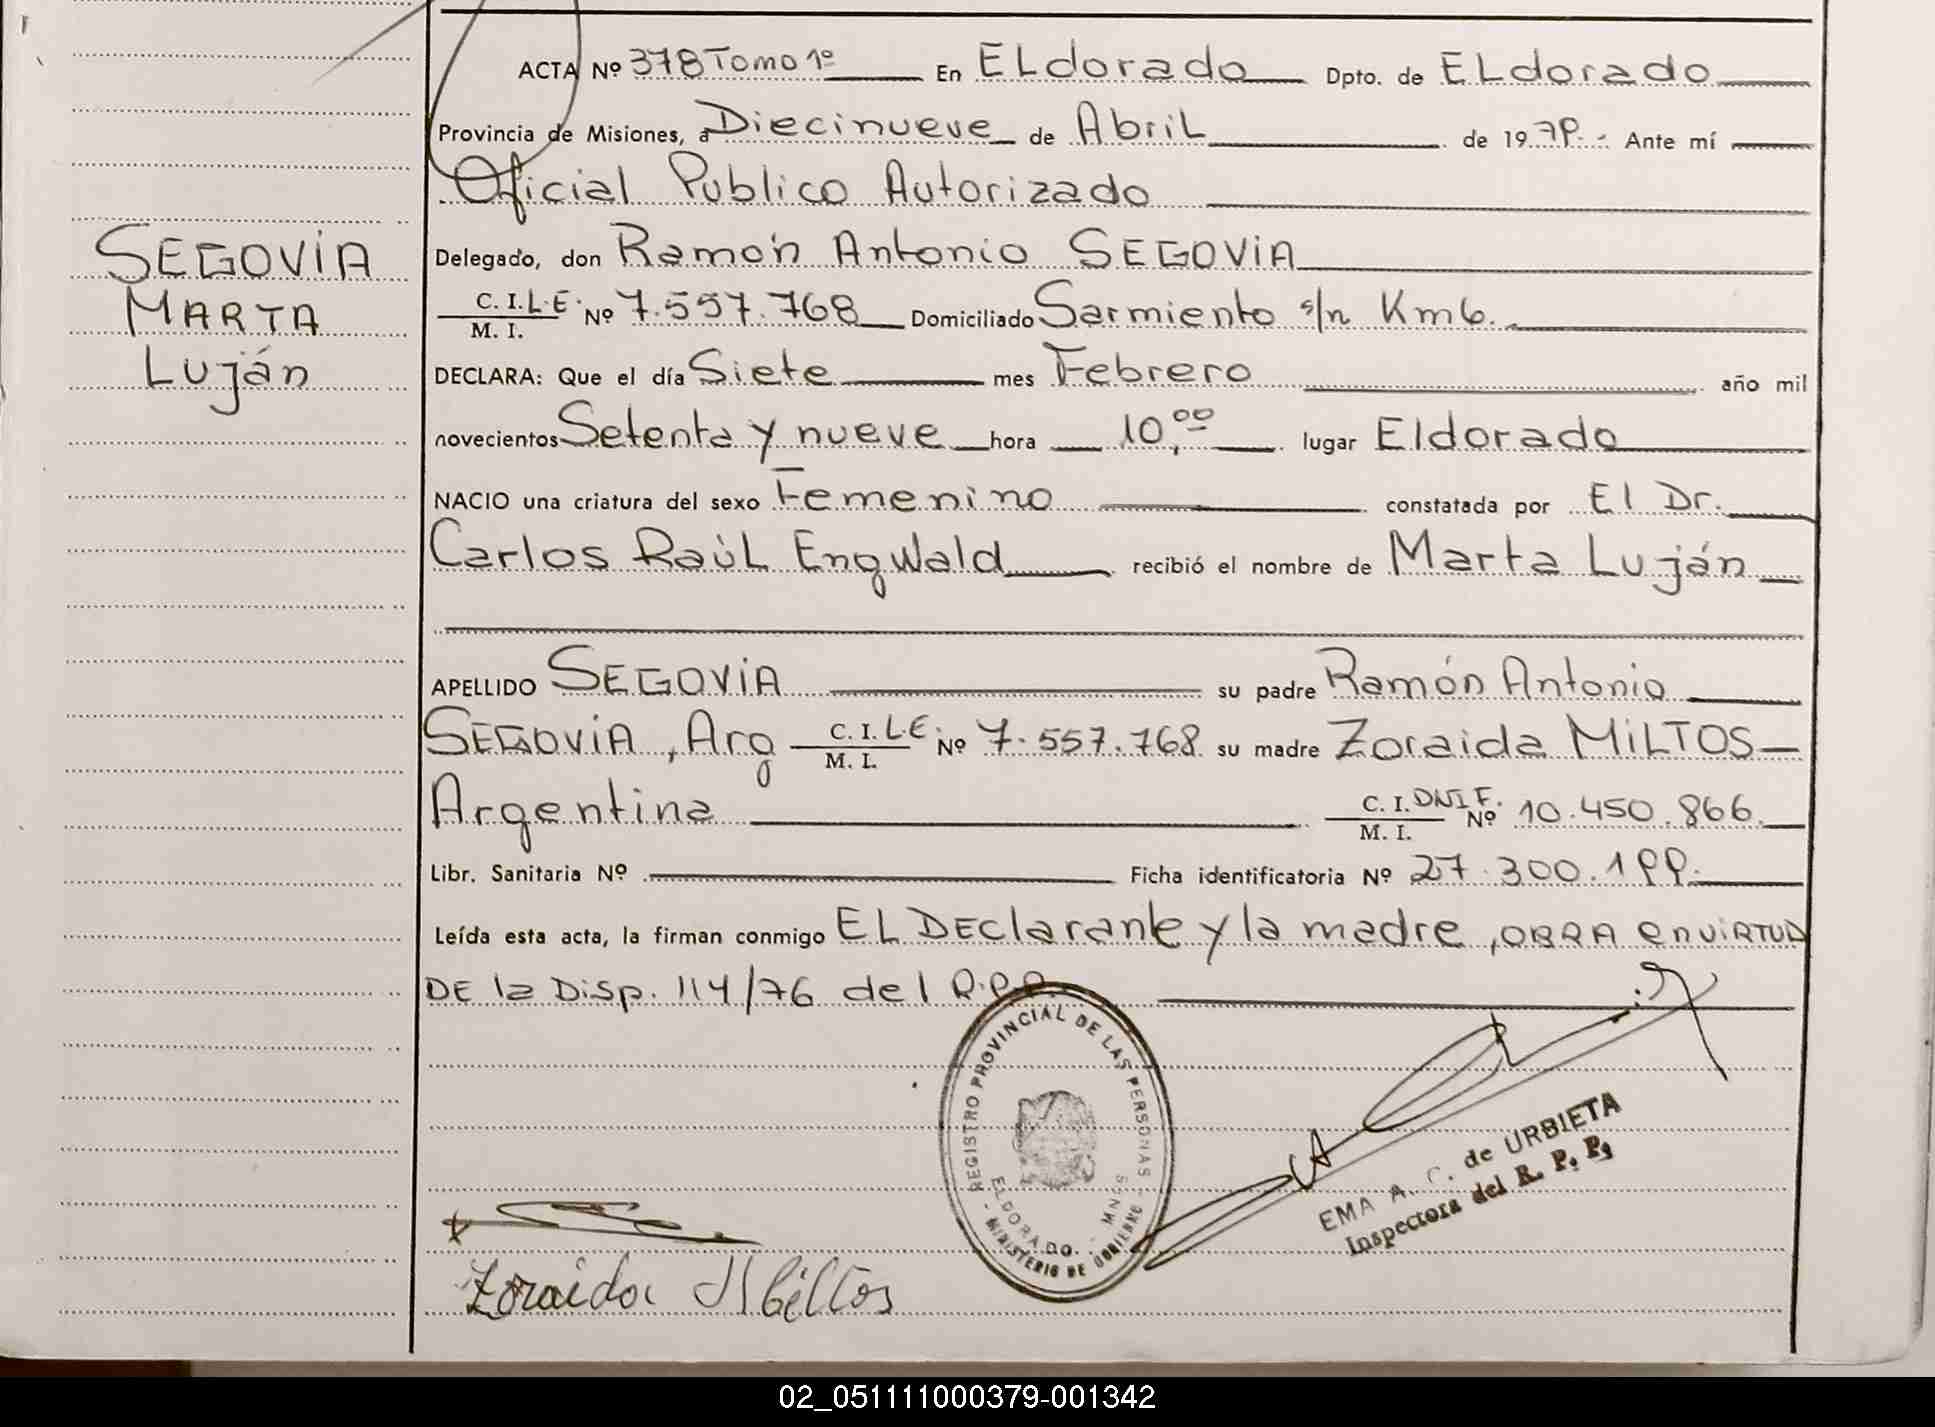 SEGOVIA
MARTA
Luján
ACTA Nº 378 Tomo 1º En ELdorado Dpto. de ELdorado
Provincia de Misiones, a Diecinueve de Abril de 1979.- Ante mí
Oficial Publico Autorizado
Delegado, don Ramón Antonio SEGOVIA
C. I. L.E. Nº 7.557.768 Domiciliado Sarmiento s/n Km 6.
M. I.
DECLARA: Que el día Siete mes Febrero año mil
novecientos Setenta y nueve hora 10,00 lugar Eldorado
NACIO una criatura del sexo Femenino constatada por El Dr.
Carlos Raúl Engwald recibió el nombre de Marta Luján
APELLIDO SEGOVIA su padre Ramón Antonio
SEGOVIA, Arg C. I. L.E. Nº 7.557.768 su madre Zoraida MILTOS
M. I.
Argentina C. I. DNI F. Nº 10.450.866.
M. I.
Libr. Sanitaria Nº Ficha identificatoria Nº 27.300.199.
Leída esta acta, la firman conmigo EL DEClarante y la madre, OBRA en VIRTUD
DE la Disp. 114/76 del R.P.P.
REGISTRO PROVINCIAL DE LAS PERSONAS
ELDORADO. - MNES
- MINISTERIO DE GOBIERNO -
EMA A. C. de URBIETA
Inspectora del R. P. P.
Zoraida Miltos
02_051111000379-001342